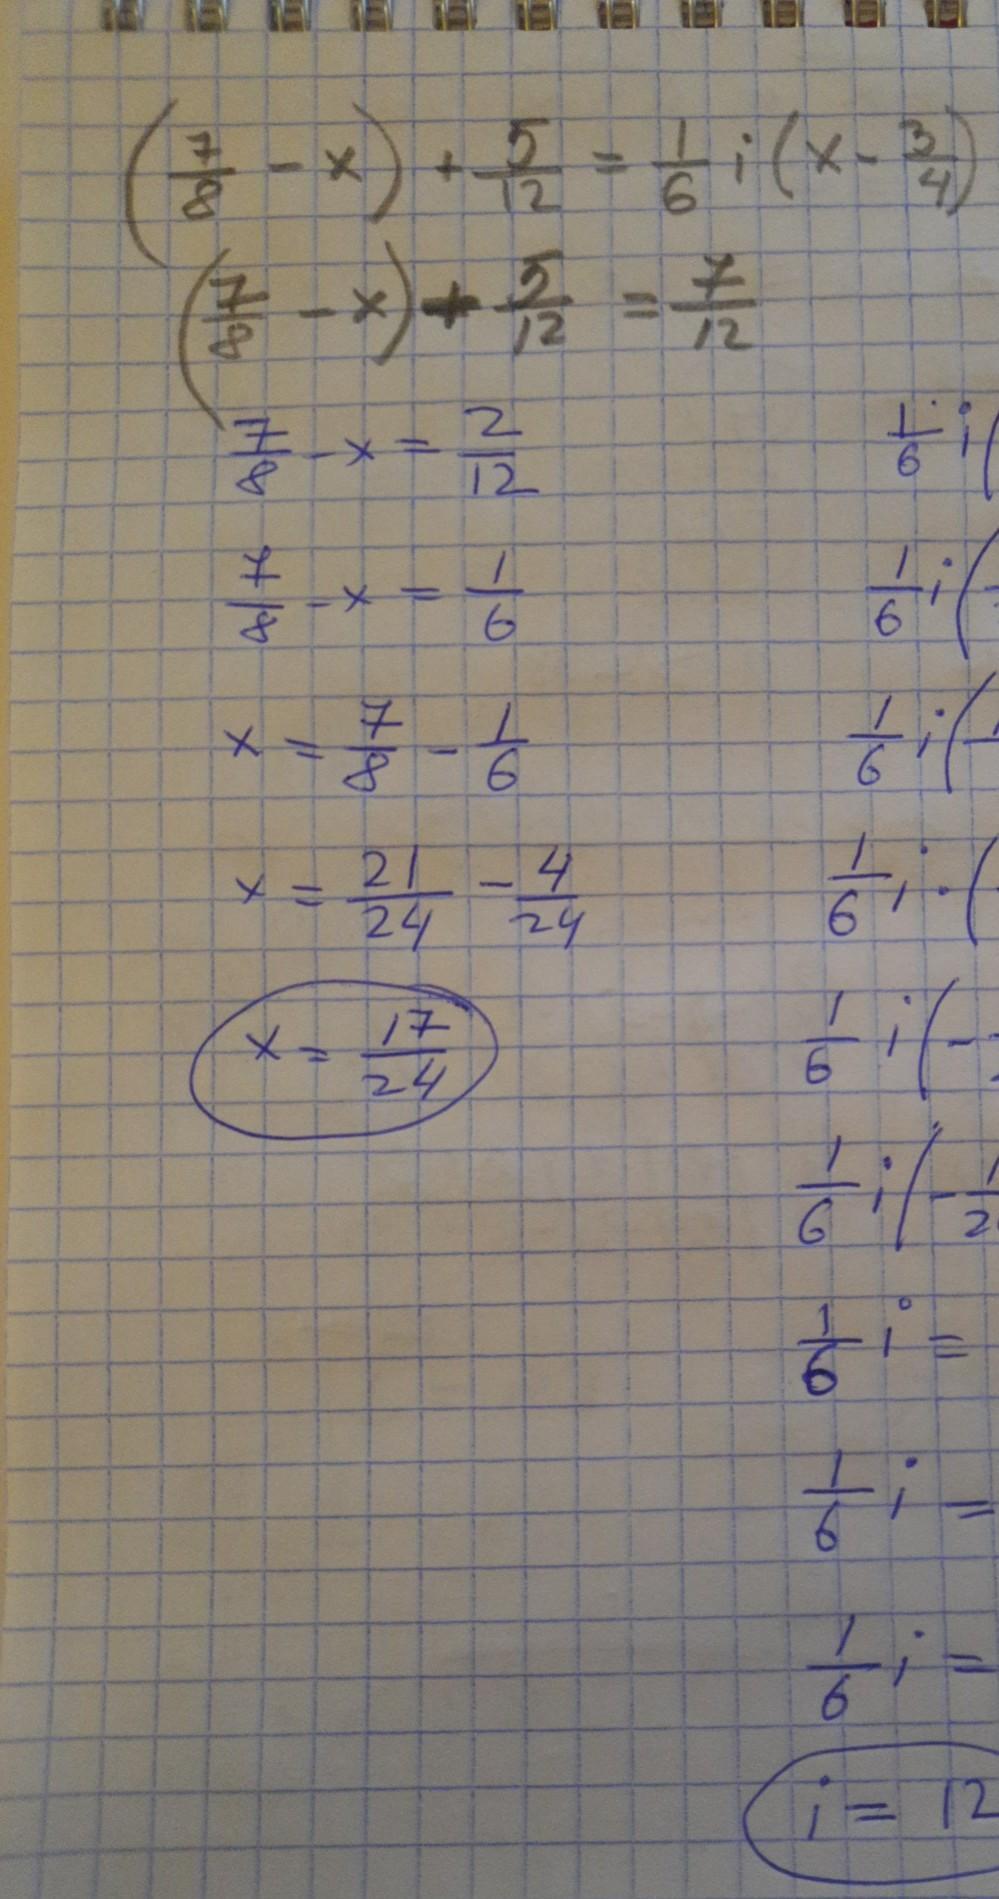 (7/8 - x) + 5/12 = 1/6 i (x - 3/4)
(7/8 - x) + 5/12 = 7/12
7/8 - x = 2/12
7/8 - x = 1/6
x = 7/8 - 1/6
x = 21/24 - 4/24
x = 17/24
1/6 i (
1/6 i (
1/6 i (
1/6 i · (
1/6 i ( -
1/6 i ( - 1/2
1/6 i =
1/6 i =
1/6 i =
i = 12